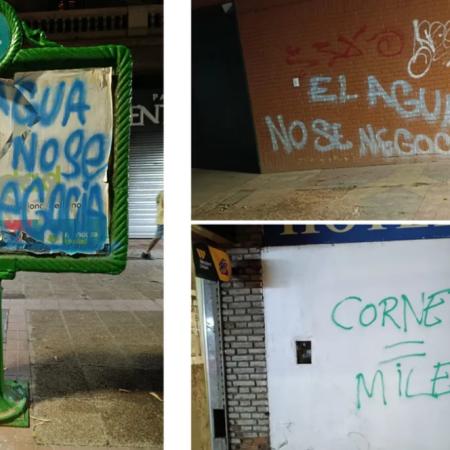 AGUA
NO SE
NEGOCIA
EL AGUA
NO SE NEGOC
HOTEL
CORNE
=
MILE